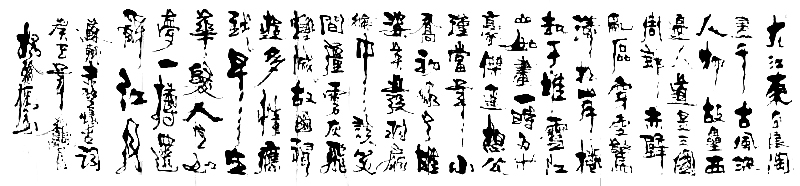 大江東去浪淘
盡千古風流
人物故壘西
邊人道是三國
周郎赤壁
亂石穿空驚
濤拍岸捲
起千堆雪江
山如畫一時多少
豪傑遙想公
瑾當年小
喬初嫁了雄
姿英發羽扇
綸巾談笑
間檣虜灰飛
煙滅故國神
遊多情應
笑我早生
華髮人生如
夢一樽還
酹江月
蘇軾赤壁懷古詞